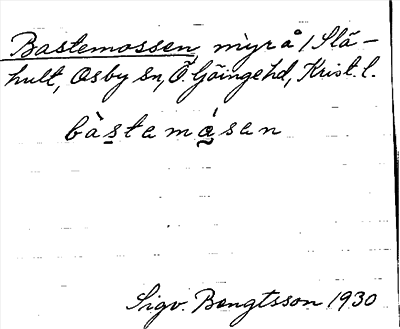 Bastemossen, myr å / Slä-
hult, Osby sn, Ö Göingehd, Krist. l.
bàstemåsen
Sigv. Bengtsson 1930